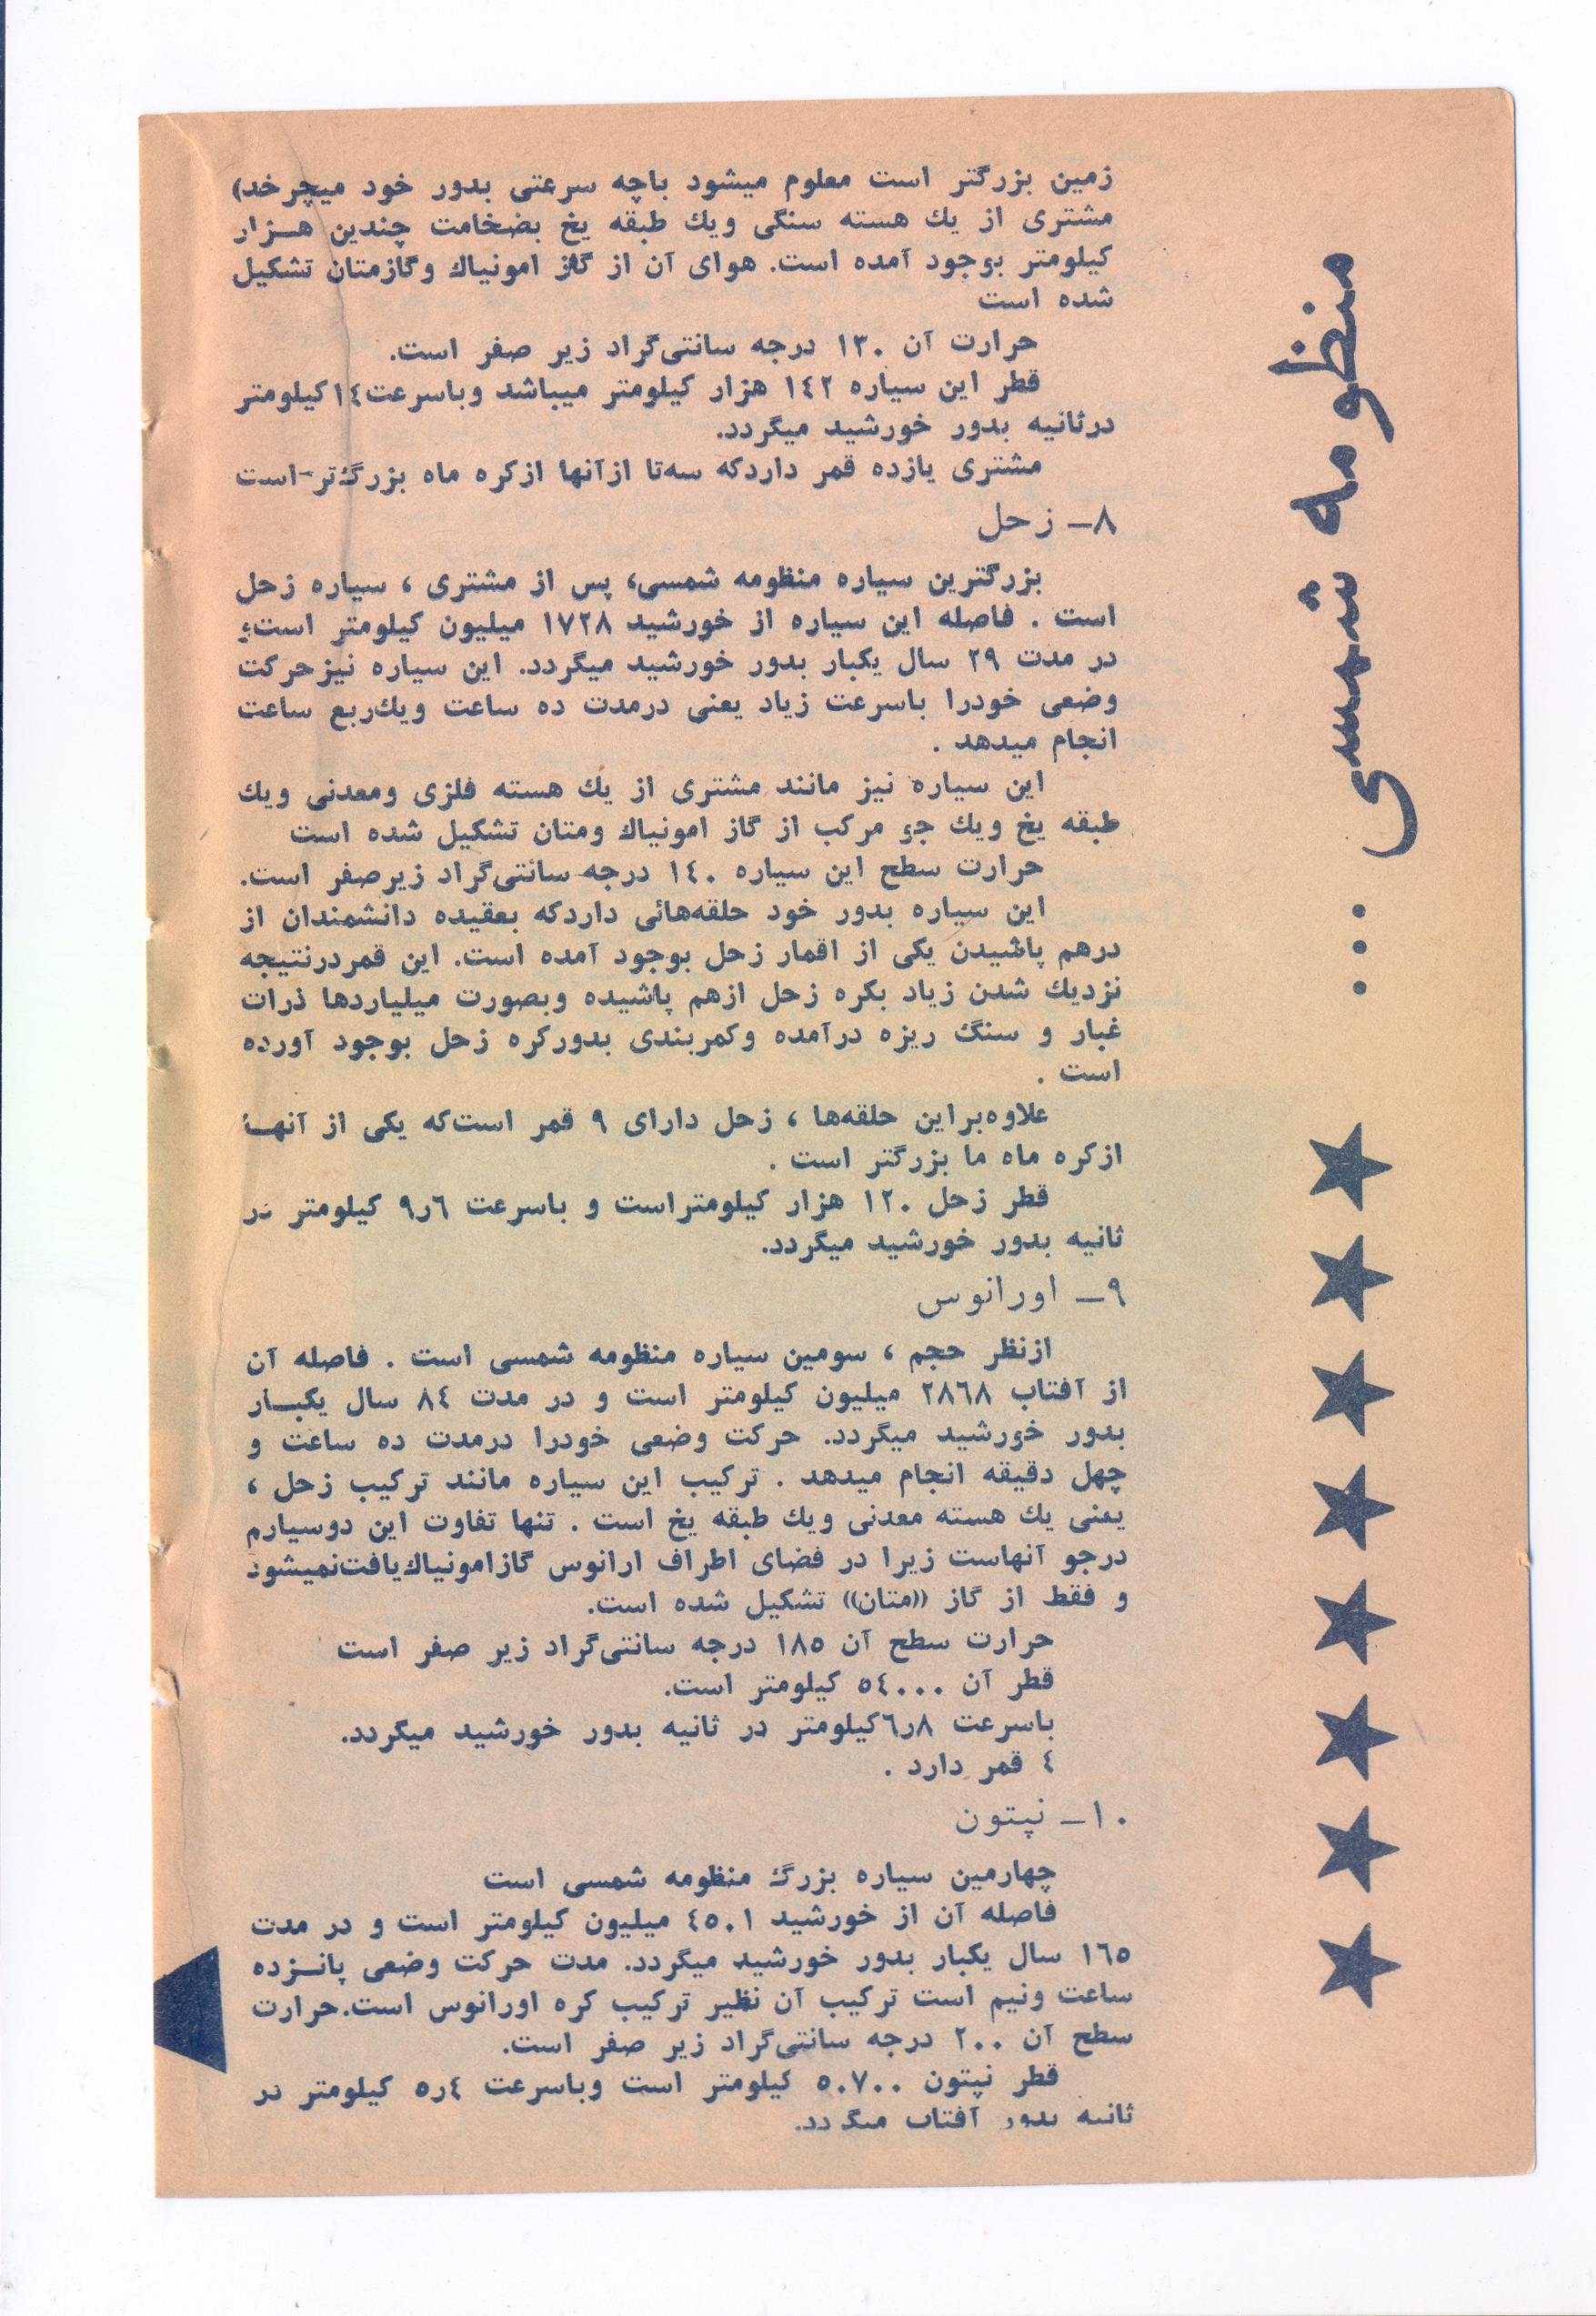 منظومه شمسی ...
زمین بزرگتر است معلوم میشود باچه سرعتی بدور خود میچرخد)
مشتری از یك هسته سنگی ویك طبقه یخ بضخامت چندین هـزار
کیلومتر بوجود آمده است. هوای آن از گاز امونیاك وگازمتان تشکیل
شده است
حرارت آن ۱۳۰ درجه سانتی‌گراد زیر صفر است.
قطر این سیاره ۱٤۲ هزار کیلومتر میباشد وباسرعت۱٤کیلومتر
درثانیه بدور خورشید میگردد.
مشتری یازده قمر داردکه سه‌تا ازآنها ازکره ماه بزرگ‌تر-است
۸- زحل
بزرگترین سیاره منظومه شمسی، پس از مشتری ، سیاره زحل
است . فاصله این سیاره از خورشید ۱۷۲۸ میلیون کیلومتر است؛
در مدت ۲۹ سال یکبار بدور خورشید میگردد. این سیاره نیزحرکت
وضعی خودرا باسرعت زیاد یعنی درمدت ده ساعت ویك‌ربع ساعت
انجام میدهد .
این سیاره نیز مانند مشتری از یك هسته فلزی ومعدنی ویك
طبقه یخ ویك جو مرکب از گاز امونیاك ومتان تشکیل شده است
حرارت سطح این سیاره ۱٤۰ درجه سانتی‌گراد زیرصفر است.
این سیاره بدور خود حلقه‌هائی داردکه بعقیده دانشمندان از
درهم پاشیدن یکی از اقمار زحل بوجود آمده است. این قمردرنتیجه
نزدیك شدن زیاد بکره زحل ازهم پاشیده وبصورت میلیاردها ذرات
غبار و سنگ ریزه درآمده وکمربندی بدورکره زحل بوجود آورده
است .
علاوه‌براین حلقه‌ها ، زحل دارای ۹ قمر است‌که یکی از آنهـا
ازکره ماه ما بزرگتر است .
قطر زحل ۱۲۰ هزار کیلومتراست و باسرعت ٦ر۹ کیلومتر در
ثانیه بدور خورشید میگردد.
۹- اورانوس
ازنظر حجم ، سومین سیاره منظومه شمسی است . فاصله آن
از آفتاب ۲۸٦۸ میلیون کیلومتر است و در مدت ۸٤ سال یکبـار
بدور خورشید میگردد. حرکت وضعی خودرا درمدت ده ساعت و
چهل دقیقه انجام میدهد . ترکیب این سیاره مانند ترکیب زحل ،
یعنی یك هسته معدنی ویك طبقه یخ است . تنها تفاوت این دوسیاره
درجو آنهاست زیرا در فضای اطراف ارانوس گازامونیاك‌یافت‌نمیشود
و فقط از گاز ((متان)) تشکیل شده است.
حرارت سطح آن ۱۸٥ درجه سانتی‌گراد زیر صفر است
قطر آن ٥٤۰۰۰ کیلومتر است.
باسرعت ۸ر٦کیلومتر در ثانیه بدور خورشید میگردد.
٤ قمر دارد .
۱۰- نپتون
چهارمین سیاره بزرگ منظومه شمسی است
فاصله آن از خورشید ٤٥۰۱ میلیون کیلومتر است و در مدت
۱٦٥ سال یکبار بدور خورشید میگردد. مدت حرکت وضعی پانـزده
ساعت ونیم است ترکیب آن نظیر ترکیب کره اورانوس است.حرارت
سطح آن ۲۰۰ درجه سانتی‌گراد زیر صفر است.
قطر نپتون ٥۰۷۰۰ کیلومتر است وباسرعت ٤ر٥ کیلومتر در
ثانیه بدور آفتاب میگردد.